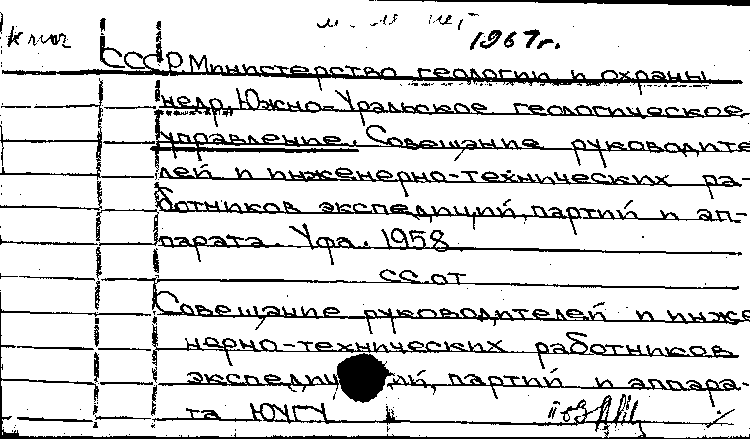 1967г.
СССР Министерство геологии и охраны
недр. Южно-Уральское геологическое
управление. Совещание руководите
лей и инженерно-технических ра-
ботников экспедиций, партий и ап-
парата. Уфа. 1958
сс.от
Совещание руководителей и инже
нерно-технических работников
экспедиций, партий и аппара-
та ЮУГУ